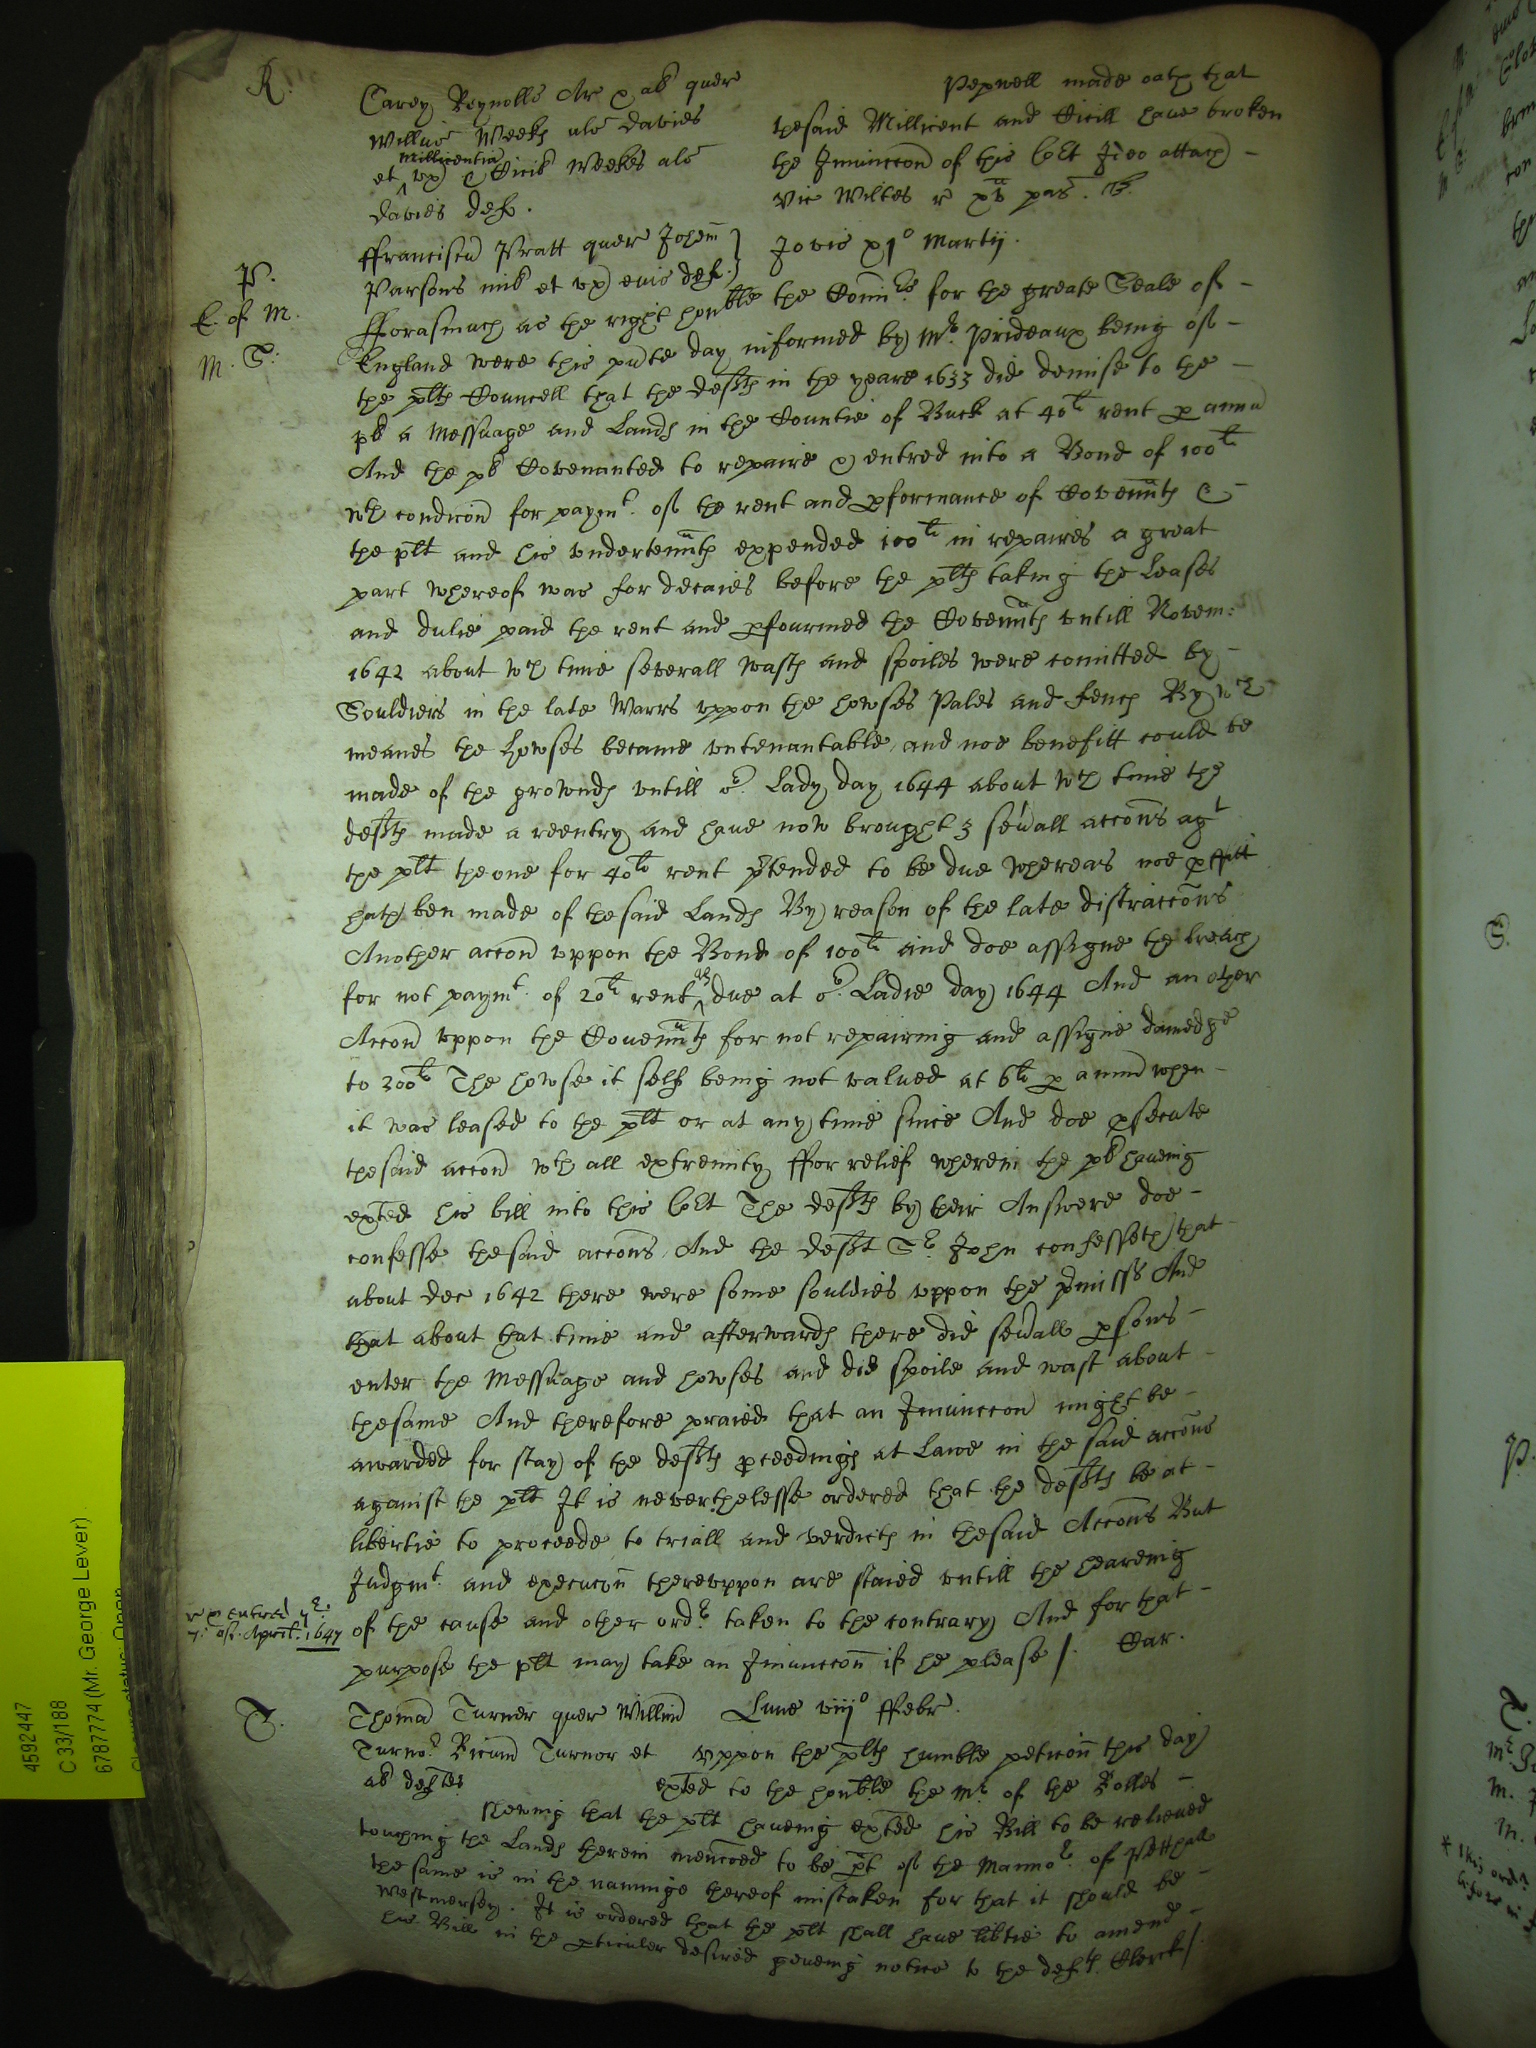 R.
Carey Reynolls Ar & al quer
Willus Weekes als Davies
Millicentia
et ux & Cicil Weekes als
Davies def.
Pepwell made oath that
thesaid Millicent and Cicill have broken
the Iniunccon of this Cort Ideo attach
Vic Wiltes r xv pas. B.
P.
E. of M.
M. S:
ffranciscu Pratt quer Johem
Parsons mil et ux eius def.
Jovis xi° Martij.
fforasmuch as the right honble the Comrs for the greate Seale of
England were this pnte day informed by Mr. Prideaux being of
the plts Councell that the defts in the yeare 1633 did demise to the
pl a Messuage and Lands in the Countie of Buck at 40li rent p annu
And the pl Covenanted to repaire & entred into a Bond of 100li
wth condicon for paymt. of the rent and pformance of Covennts &
the plt and his undertennts expended 100li in repaires a great
part whereof was for decaies before the plts taking the Leases
and dulie paid the rent and pfourmed the Covennts untill Novem:
1642 about wch time severall wasts and spoiles were comitted by
Souldiers in the late Warrs uppon the howses Pales and fences By wch
meanes the howses became untenantable and noe benefitt could be
made of the grownds untill or. Lady day 1644 about wch time the
defts made a reentry and have now brought 3 sevall accons agt
the plt the one for 40li rent ptended to be due whereas noe pffitt
hath ben made of thesaid Lands By reason of the late distraccons
Another accon uppon the Bond of 100li and doe assigne the breach
for not paymt. of 20li rent due at or. Ladie day 1644 And an other
Accon uppon the Covennts for not repairing and assigne damedge
to 300li The howse it self being not valued at 6li p annu when
it was leased to the plt or at any time since And doe psecute
thesaid accons wth all extremity ffor relief wherein the pl haveing
exted his bill into this Cort The defts by their Answere doe
confesse thesaid accons And the deft Sr. John confesseth that
about Dec 1642 there were some souldies uppon the pmisss And
that about that time and afterwards there did sevall psons
enter the Messuage and howses and did spoile and wast about
thesame And therefore praied that an Iniunccon might be
awarded for stay of the defts pceedings at Lawe in the said accons
against the plt It is neverthelesse ordered that the defts be at
libertie to proceede to triall and verdicts in thesaid Accons But
Judgmt. and execucon thereuppon are staied untill the heareing
of the cause and other ordr taken to the contrary And for that
purpose the plt may take an Iniunccon if he please /. Car.
entred ye
7: of: Aprill: 1647
T.
Thomas Turner quer Willm
Turnor Ricum Turnor et
al deftes
Lune viij° ffebr.
Uppon the plts humble peticon this day
exted to the honble the Mr. of the Rolles
shewing that the plt haveing exted his Bill to be relieved
touching the Lands therein mencoed to be pt of the Mannor. of
the same is in the nameinge thereof mistaken for that it should be
Westmersey. It is ordered that the plt shall have libtie to amend
his Bill in the pticuler desired geveing notice to the defts Clerck/.
4592447
C 33/188
6787774 (Mr. George Lever)
S.
P.
T.